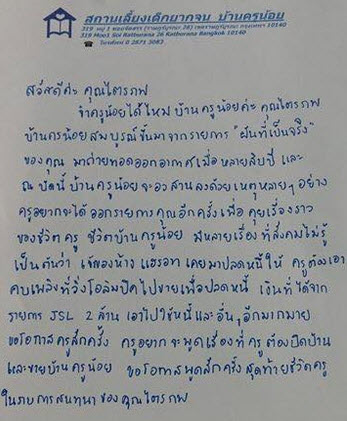 สถานเลี้ยงเด็กยากจน บ้านครูน้อย
319 หมู่ 1 ซอยราษฎร์บูรณะ 26 เขตราษฎร์บูรณะ กรุงเทพฯ 10140
319 Moo1 Soi Ratburana 26 Ratburana Bangkok 10140
โทรศัพท์ 0 2871 3083
สวัสดีค่ะ คุณไตรภพ
จำครูน้อยได้ไหม บ้านครูน้อยค่ะ คุณไตรภพ
บ้านครูน้อย สมบูรณ์ขึ้นมาจากรายการ "ฝันที่เป็นจริง"
ของคุณ มาถ่ายทอดออกอากาศเมื่อหลายสิบปี และ
ณ บัดนี้ บ้านครูน้อยจะอวสานลงด้วยเหตุหลายๆ อย่าง
ครูอยากจะได้ออกรายการคุณอีกครั้งเพื่อ คุยเรื่องราว
ของชีวิตครู ชีวิตบ้านครูน้อย มีหลายเรื่องที่สังคมไม่รู้
เป็นต้นว่า เจ้ของห้าง แฮรอท เคยมาปลดหนี้ให้ ครูต้องเอา
คบเพลิงที่วิ่งโอลิมปิคไปขายเพื่อปลดหนี้ เงินที่ได้จาก
รายการ JSL 2 ล้าน เอาไปใช้หนี้และอื่นๆ อีกมากมาย
ขอโอกาสครูสักครั้ง ครูอยากจะพูดเรื่องที่ครูต้องปิดบ้าน
และขายบ้านครูน้อย ขอโอกาสพูดสักครั้งสุดท้ายชีวิตครู
ในรายการสนทนาของคุณไตรภพ